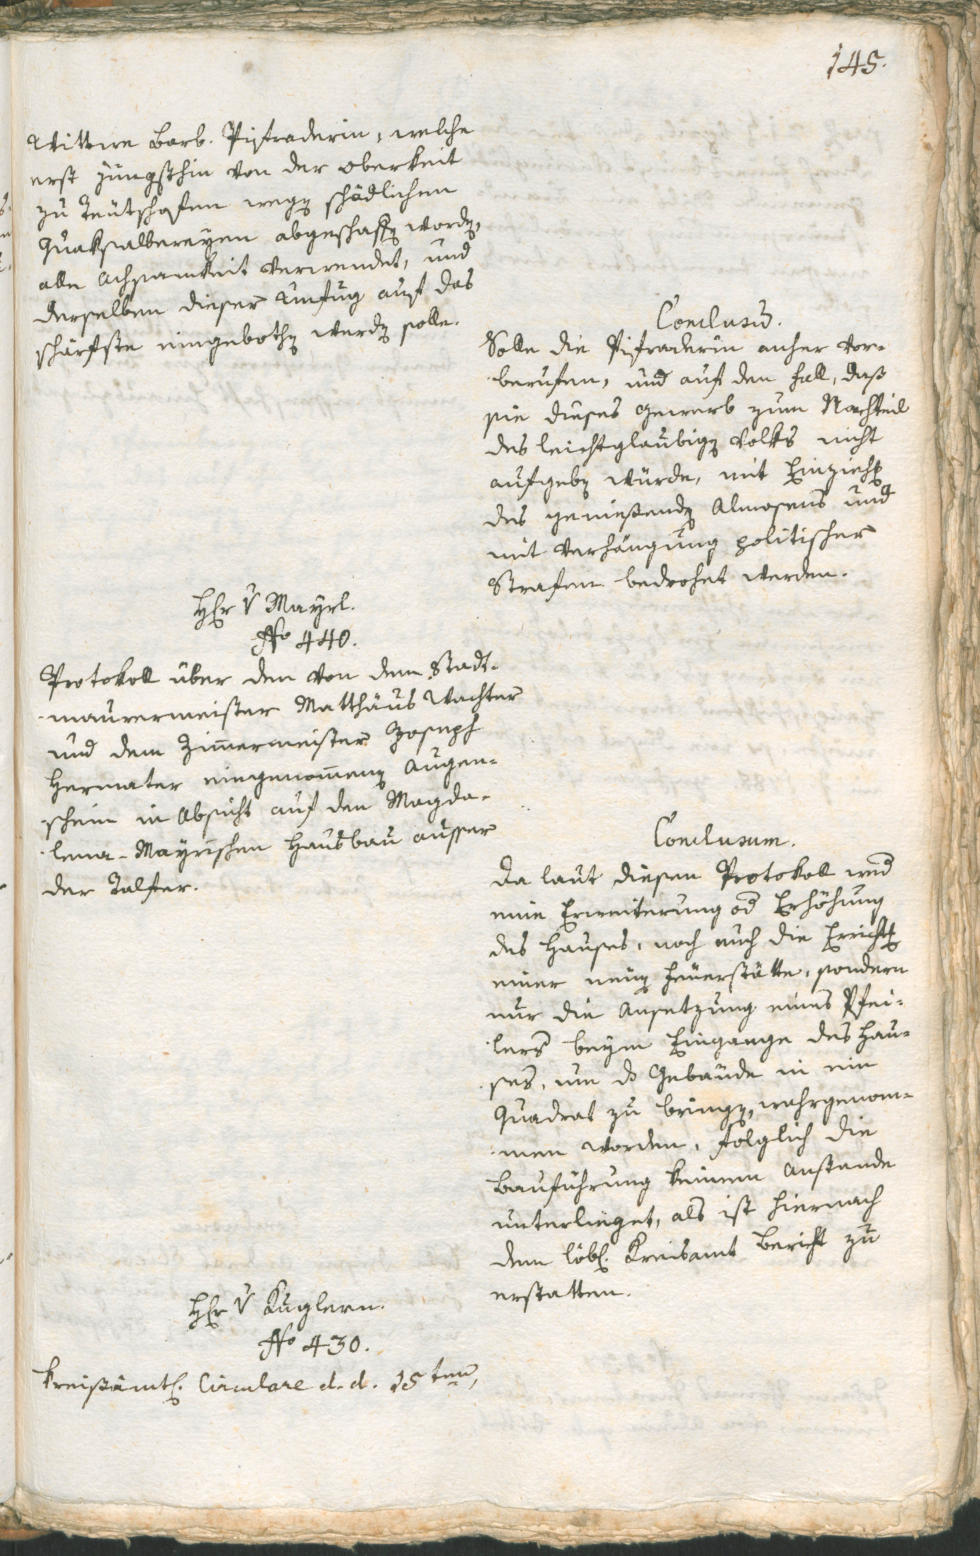 145.
Wittwe Barb. Pixtraderin, welche
erst jüngsthin von der Oberkeit
zu Teütschofen wegen schädlichen
Quaksalbereyen abgeschaft worden,
alle Achsamkeit verwendet, und
derselben dieser Unfug auf das
schärfste eingebothen werden solle.
Conclusum.
Solle die Pixtraderin anher vor-
berufen, und auf den Fall, daß
sie dieses Gewerb zum Nachtheil
des leichtglaubigen Volks nicht
aufgeben würde, mit Einziehung
des geniessenden Almosens und
mit Verhängung politischer
Strafen bedrohet werden.
Hr v Mayrl.
No 440.
Protokoll über den von dem Stadt-
maurermeister Matthäus Wachter
und dem Zimmermeister Joseph
Hermater eingenommenen Augen-
schein in Absicht auf den Magda-
lena-Mayrischen Hausbau ausser
der Talfer.
Conclusum.
Da laut diesen Protokoll wed
eine Erweiterung od Erhöhung
des Hauses, noch auch die Errichtung
einer neuen Feuerstätte, sondern
nur die Ansetzung eines Pfei-
lers beym Eingange des Hau-
ses, um ds Gebäude in ein
Quadrat zu bringen, wahrgenom-
men worden, folglich die
Bauführung keinem Anstande
unterlieget, als ist hiernach
dem löbl. Kreisamt Bericht zu
erstatten.
Hr v Kuglern.
No 430.
Kreisämtl. Circulare d. d. 15ten,